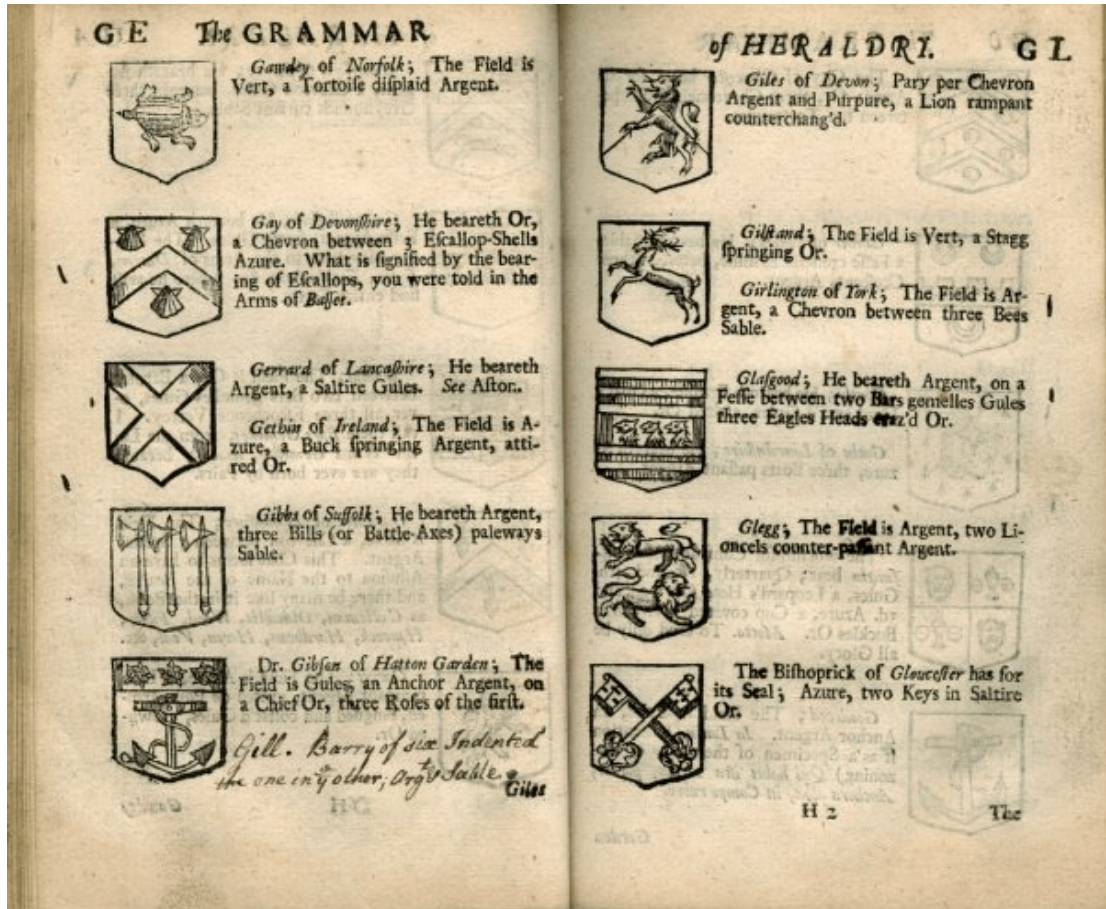 G E The GRAMMAR
Gawdey of Norfolk; The Field is
Vert, a Tortoiſe diſplaid Argent.
Gay of Devonſhire; He beareth Or,
a Chevron between 3 Eſcallop-Shells
Azure. What is ſignified by the bear-
ing of Eſcallops, you were told in the
Arms of Baſſet.
Gerrard of Lancaſhire; He beareth
Argent, a Saltire Gules. See Aſton.
Gethin of Ireland; The Field is A-
zure, a Buck ſpringing Argent, atti-
red Or.
Gibbs of Suffolk; He beareth Argent,
three Bills (or Battle-Axes) paleways
Sable.
Dr. Gibſon of Hatton Garden; The
Field is Gules, an Anchor Argent, on
a Chief Or, three Roſes of the firſt.
Gill. Barry of six Indented
the one in ye other, Or & Sable
Giles
of HERALDRY. G L
Giles of Devon; Pary per Chevron
Argent and Purpure, a Lion rampant
counterchang'd.
Gilſtand; The Field is Vert, a Stagg
ſpringing Or.
Girlington of York; The Field is Ar-
gent, a Chevron between three Bees
Sable.
Glaſgood; He beareth Argent, on a
Feſſe between two Bars gemelles Gules
three Eagles Heads eraz'd Or.
Glegg; The Field is Argent, two Li-
oncels counter-paſſant Argent.
The Biſhoprick of Glouceſter has for
its Seal; Azure, two Keys in Saltire
Or.
H 2 The